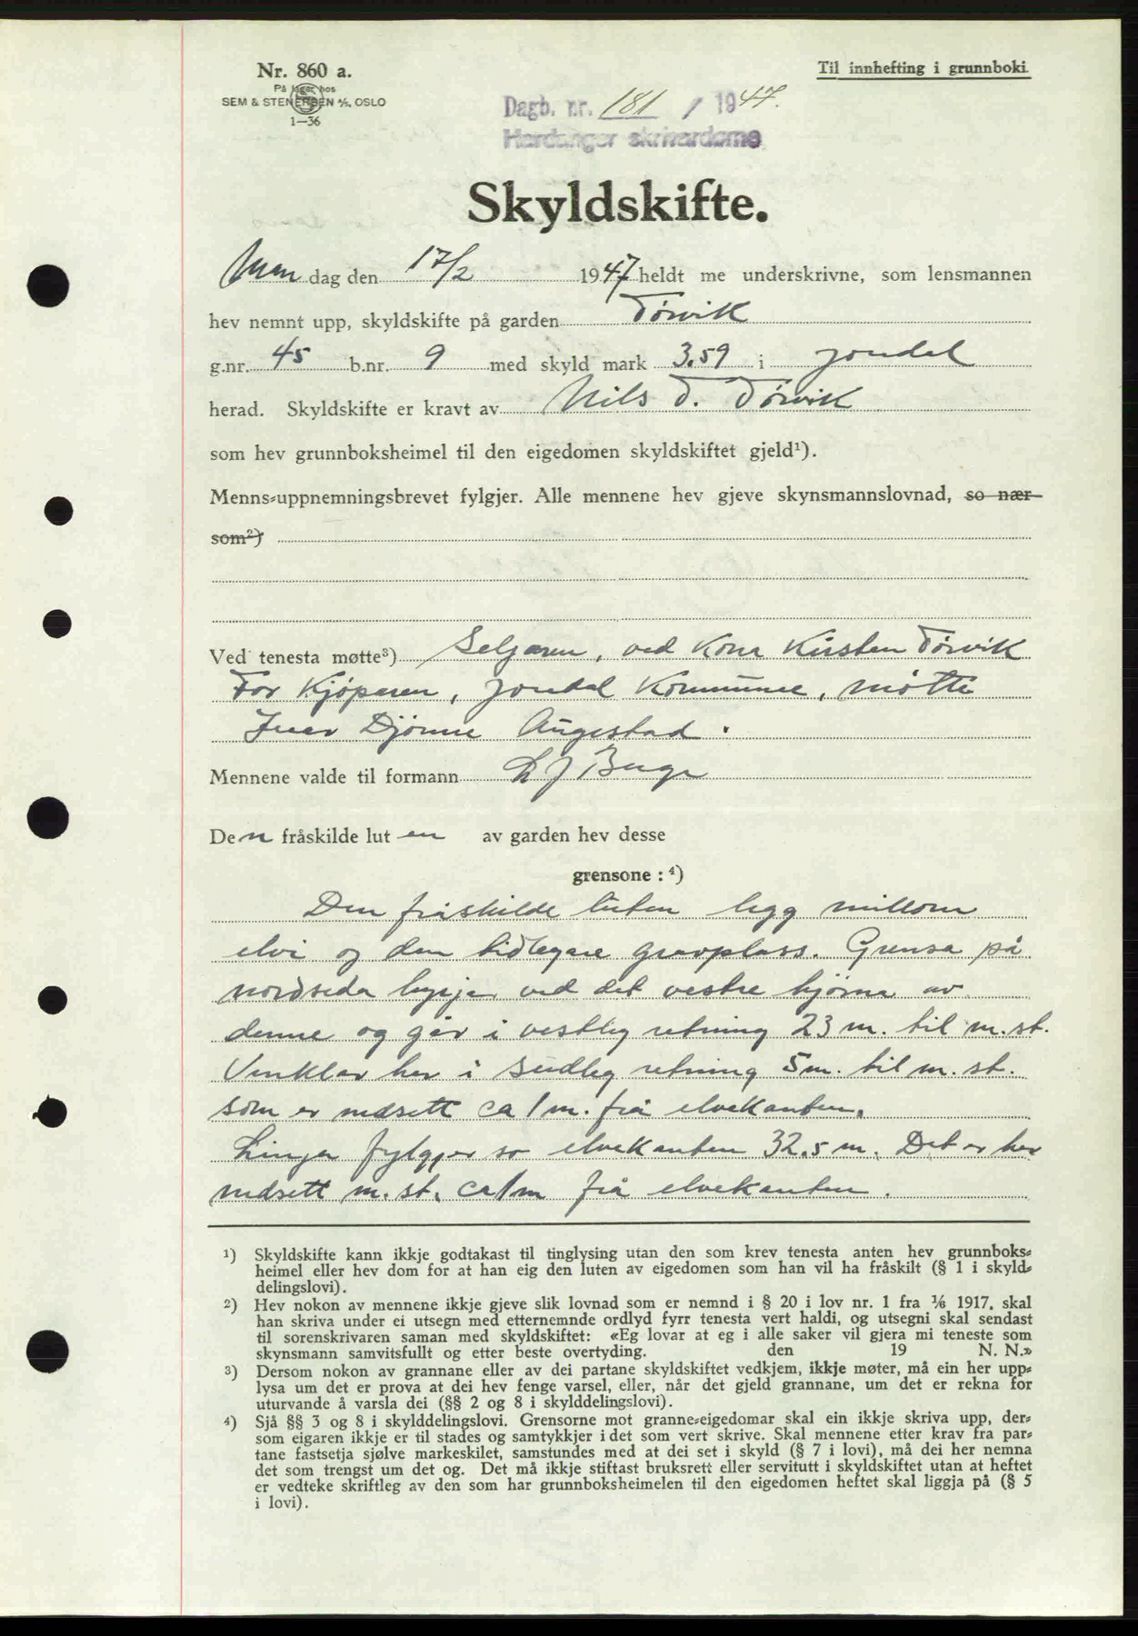 Nr. 860 a.
På lager hos
SEM & STENERSEN A/S, OSLO
1—36
Til innhefting i grunnboki
Dagb. nr. 181 / 1947.
Hardanger skrivardøme
Skyldskifte.
Mon dag den 17/2 1947 heldt me underskrivne, som lensmannen
hev nemnt upp, skyldskifte på garden Tørvik
g.nr. 45 b.nr. 9 med skyld mark 3.59 i Jondal
herad. Skyldskifte er kravt av Nils T. Tørvik
som hev grunnboksheimel til den eigedomen skyldskiftet gjeld¹).
Menns-uppnemningsbrevet fylgjer. Alle mennene hev gjeve skynsmannslovnad, so nær
som²)
Ved tenesta møtte³) Seljaren, ved Kona Kirsten Tørvik
For Kjøparen, Jondal Kommune, møtte
Iver Djønne Augestad.
Mennene valde til formann L J
Den fråskilde luten av garden hev desse
grensone : ⁴)
Den fråskilde luten ligg millom
elvi og den tidlegare gravplass. Grensa på
nordsida byrjar ved det vestre hjørna av
denne og går i vestleg retning 23 m. til m.st.
Vinklar her i sudleg retning 5 m. til m. st.
som er nedsett ca 1 m. frå elvekanten.
Linja fylgjer so elvekanten 32.5 m. Det er her
nedsett m. st. ca 1 m frå elvekanten.
¹) Skyldskifte kann ikkje godtakast til tinglysing utan den som krev tenesta anten hev grunnboks-
heimel eller hev dom for at han eig den luten av eigedomen som han vil ha fråskilt (§ 1 i skyld-
delingslovi).
²) Hev nokon av mennene ikkje gjeve slik lovnad som er nemnd i § 20 i lov nr. 1 fra 1/6 1917, skal
han skriva under ei utsegn med etternemnde ordlyd fyrr tenesta vert haldi, og utsegni skal sendast
til sorenskrivaren saman med skyldskiftet: «Eg lovar at eg i alle saker vil gjera mi teneste som
skynsmann samvitsfullt og etter beste overtyding. den 19 N. N.»
³) Dersom nokon av grannane eller av dei partane skyldskiftet vedkjem, ikkje møter, må ein her upp-
lysa um det er prova at dei hev fenge varsel, eller, når det gjeld grannane, um det er rekna for
uturvande å varsla dei (§§ 2 og 8 i skylddelingslovi).
⁴) Sjå §§ 3 og 8 i skylddelingslovi. Grensorne mot granne-eigedomar skal ein ikkje skriva upp, der-
som eigaren ikkje er til stades og samtykkjer i det som vert skrive. Skal mennene etter krav fra par-
tane fastsetja sjølve markeskilet, samstundes med at dei set i skyld (§ 7 i lovi), må dei her nemna
det som trengst um det og. Det må ikkje stiftast bruksrett eller servitutt i skyldskiftet utan at heftet
er vedteke skriftleg av den som har grunnboksheimelen til den eigedomen heftet skal liggja på (§ 5
i lovi).